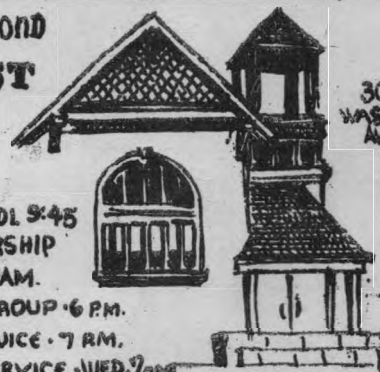 OND
ST
30
WAS
A
OL 9:45
RSHIP
AM.
ROUP · 6 P.M.
VICE · 7 P.M.
RVICE · WED. 7